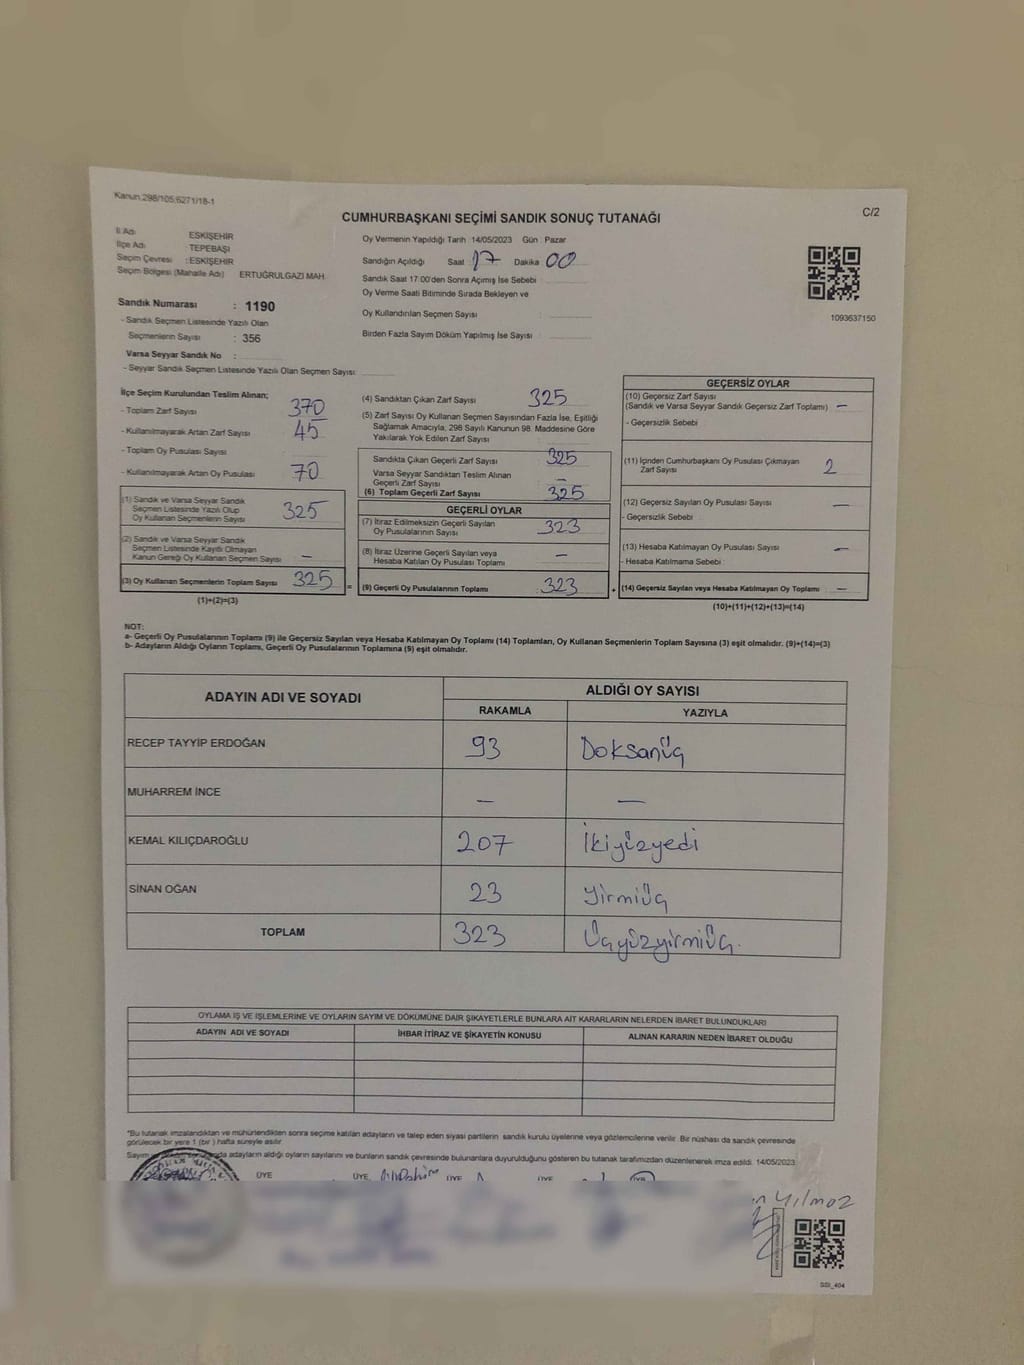 Kanun:298/105,6271/18-1
C/2
CUMHURBAŞKANI SEÇİMİ SANDIK SONUÇ TUTANAĞI
İl Adı ESKİŞEHİR
İlçe Adı TEPEBAŞI
Seçim Çevresi : ESKİŞEHİR
Seçim Bölgesi (Mahalle Adı) ERTUĞRULGAZI MAH.
Sandık Numarası : 1190
- Sandık Seçmen Listesinde Yazılı Olan
Seçmenlerin Sayısı : 356
Varsa Seyyar Sandık No :
- Seyyar Sandık Seçmen Listesinde Yazılı Olan Seçmen Sayısı:
Oy Vermenin Yapıldığı Tarih 14/05/2023 Gün : Pazar
Sandığın Açıldığı Saat 17 Dakika 00
Sandık Saat 17:00'den Sonra Açımış İse Sebebi :
Oy Verme Saati Bitiminde Sırada Bekleyen ve
Oy Kullandırılan Seçmen Sayısı :
Birden Fazla Sayım Döküm Yapılmış İse Sayısı :
1093637150
İlçe Seçim Kurulundan Teslim Alınan;
- Toplam Zarf Sayısı 370
- Kullanılmayarak Artan Zarf Sayısı : 45
- Toplam Oy Pusulası Sayısı :
- Kullanılmayarak Artan Oy Pusulası : 70
(1) Sandık ve Varsa Seyyar Sandık
Seçmen Listesinde Yazılı Olup
Oy Kullanan Seçmenlerin Sayısı 325
(2) Sandık ve Varsa Seyyar Sandık
Seçmen Listesinde Kayıtlı Olmayan
Kanun Gereği Oy Kullanan Seçmen Sayısı : –
(3) Oy Kullanan Seçmenlerin Toplam Sayısı 325 =
(1)+(2)=(3)
(4) Sandıktan Çıkan Zarf Sayısı : 325
(5) Zarf Sayısı Oy Kullanan Seçmen Sayısından Fazla İse, Eşitliği
Sağlamak Amacıyla, 298 Sayılı Kanunun 98. Maddesine Göre
Yakılarak Yok Edilen Zarf Sayısı :
Sandıkta Çıkan Geçerli Zarf Sayısı 325
Varsa Seyyar Sandıktan Teslim Alınan
Geçerli Zarf Sayısı : –
(6) Toplam Geçerli Zarf Sayısı : 325
GEÇERLİ OYLAR
(7) İtiraz Edilmeksizin Geçerli Sayılan
Oy Pusulalarının Sayısı : 323
(8) İtiraz Üzerine Geçerli Sayılan veya
Hesaba Katılan Oy Pusulası Toplamı : –
(9) Geçerli Oy Pusulalarının Toplamı : 323 +
GEÇERSİZ OYLAR
(10) Geçersiz Zarf Sayısı
(Sandık ve Varsa Seyyar Sandık Geçersiz Zarf Toplamı) : –
- Geçersizlik Sebebi :
(11) İçinden Cumhurbaşkanı Oy Pusulası Çıkmayan
Zarf Sayısı : 2
(12) Geçersiz Sayılan Oy Pusulası Sayısı : –
- Geçersizlik Sebebi :
(13) Hesaba Katılmayan Oy Pusulası Sayısı : –
- Hesaba Katılmama Sebebi :
(14) Geçersiz Sayılan veya Hesaba Katılmayan Oy Toplamı : –
(10)+(11)+(12)+(13)=(14)
NOT:
a- Geçerli Oy Pusulalarının Toplamı (9) ile Geçersiz Sayılan veya Hesaba Katılmayan Oy Toplamı (14) Toplamları, Oy Kullanan Seçmenlerin Toplam Sayısına (3) eşit olmalıdır. (9)+(14)=(3)
b- Adayların Aldığı Oyların Toplamı, Geçerli Oy Pusulalarının Toplamına (9) eşit olmalıdır.
ADAYIN ADI VE SOYADI ALDIĞI OY SAYISI
RAKAMLA YAZIYLA
RECEP TAYYİP ERDOĞAN 93 Doksanüç
MUHARREM İNCE – –
KEMAL KILIÇDAROĞLU 207 İkiyüzyedi
SİNAN OĞAN 23 Yirmiüç
TOPLAM 323 Üçyüzyirmiüç.
OYLAMA İŞ VE İŞLEMLERİNE VE OYLARIN SAYIM VE DÖKÜMÜNE DAİR ŞİKAYETLERLE BUNLARA AİT KARARLARIN NELERDEN İBARET BULUNDUKLARI
ADAYIN ADI VE SOYADI İHBAR İTİRAZ VE ŞİKAYETİN KONUSU ALINAN KARARIN NEDEN İBARET OLDUĞU
*Bu tutanak imzalandıktan ve mühürlendikten sonra seçime katılan adayların ve talep eden siyasi partilerin sandık kurulu üyelerine veya gözlemcilerine verilir. Bir nüshası da sandık çevresinde
görülecek bir yere 1 (bir) hafta süreyle asılır.
adayların aldığı oyların sayılarını ve bunların sandık çevresinde bulunanlara duyurulduğunu gösteren bu tutanak tarafımızdan düzenlenerek imza edildi. 14/05/2023
ÜYE ÜYE ÜYE ÜYE
Yılmaz
SSI_404